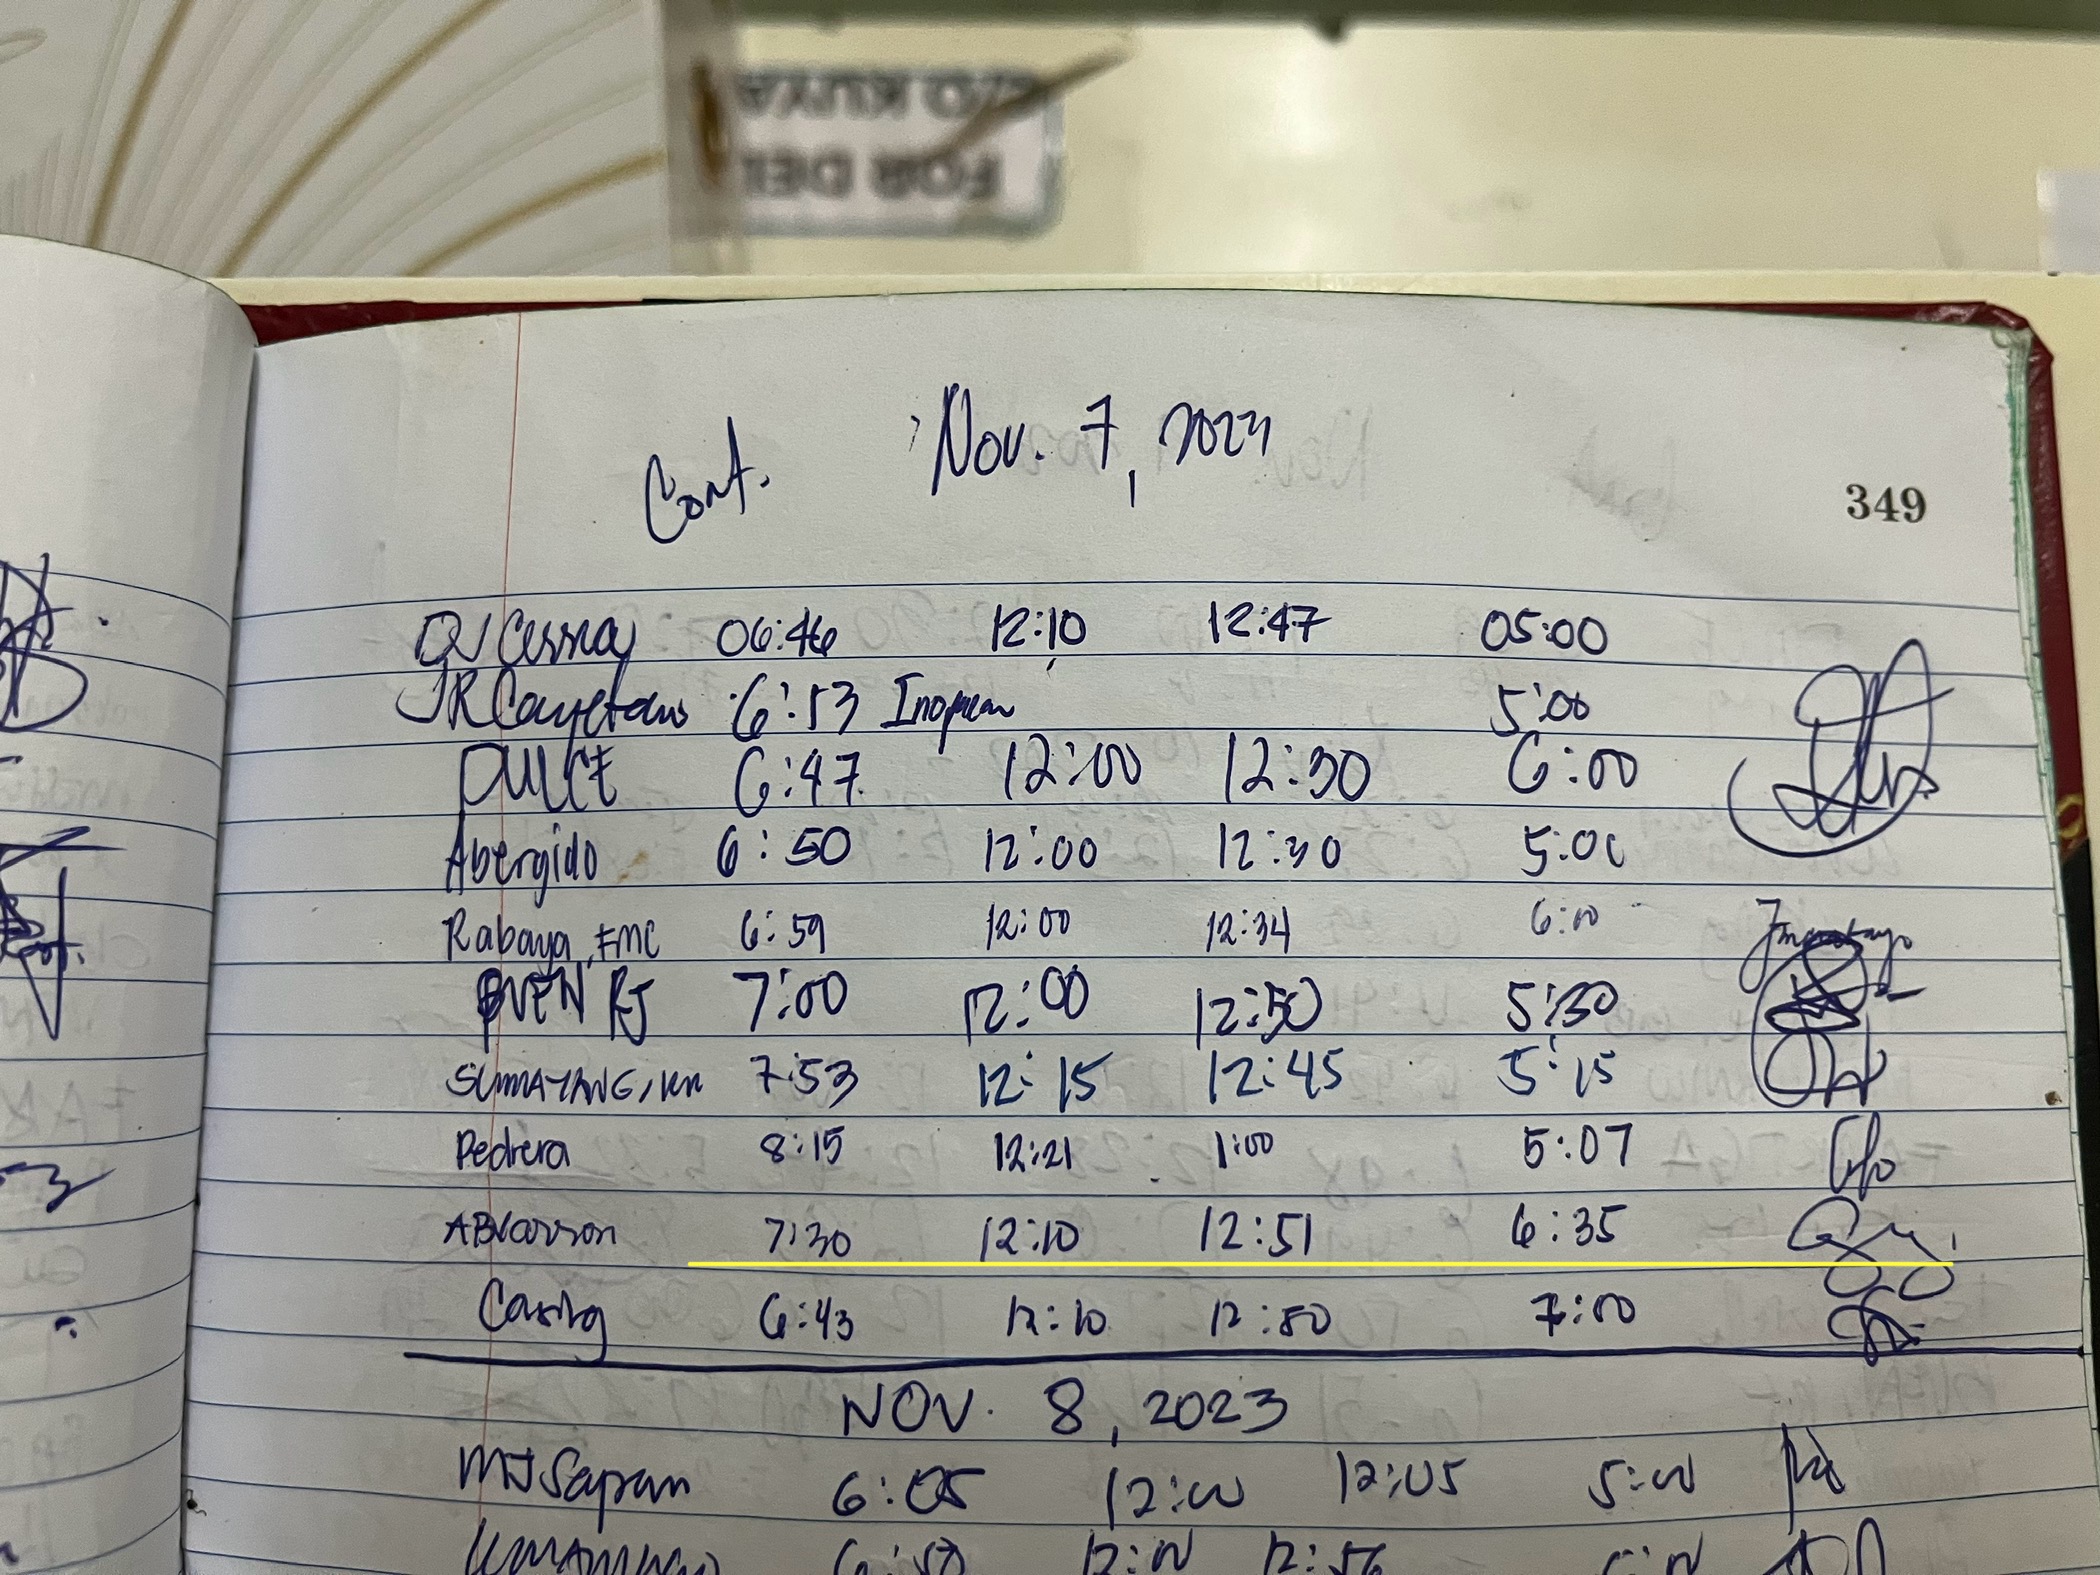 C/O KUYA
FOR DEL
Cont. Nov. 7, 2023
349
06:46 12:10 12:47 05:00
JR Cayetano 6:53 5:00
DULCE 6:47 12:00 12:30 6:00
Abergido 6:50 12:00 12:30 5:00
Rabaya, FMC 6:59 12:00 12:34 6:00
BUEN RJ 7:00 12:00 12:50 5:30
SUMAYANG, KN 7:53 12:15 12:45 5:15
Pedrera 8:15 12:21 1:00 5:07
7:30 12:10 12:51 6:35
Casing 6:43 12:10 12:50 7:00
NOV. 8, 2023
MJ Sapran 6:05 12:00 12:05 5:00
6:50 12:00 12:56